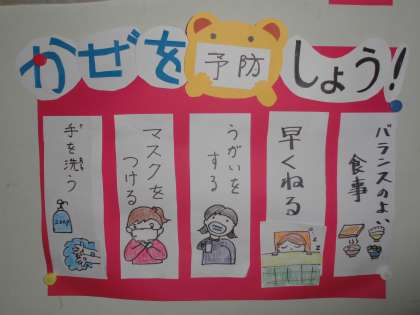 かぜを予防しょう!
バランスのよい
食事
早くねる
うがいを
する
マスクを
つける
手を洗う
soap